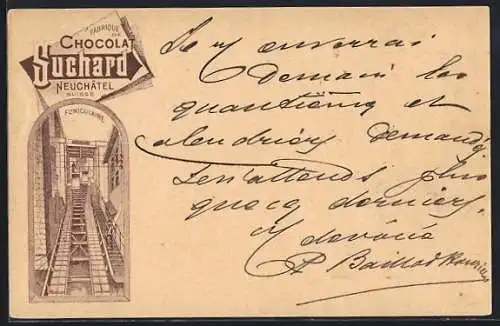 FABRIQUE
DE
CHOCOLAT
Suchard
NEUCHÂTEL
SUISSE
FUNICULAIRE
Je enverrai
Demain les
quantièmes et
calendriers demandés
J'en attends plus
que derniers.
dévoué
Baillod